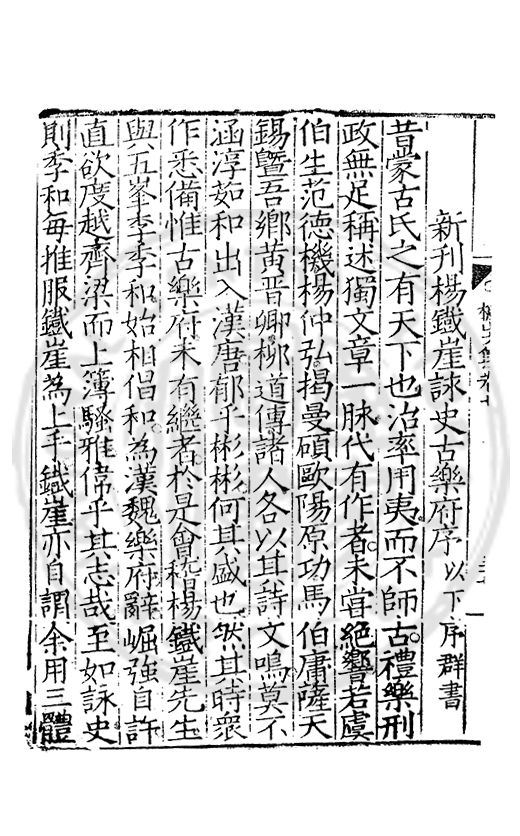 新刋楊鐵崖詠史古樂府序以下序群書
昔蒙古氏之有天下也治率用夷而不師古禮樂刑
政無足稱述獨文章一脉代有作者未甞絕響若虞
伯生范德機楊仲弘揭曼碩歐陽原功馬伯庸薩天
錫曁吾鄉黃晉卿柳道傳諸人各以其詩文鳴莫不
涵淳茹和出入漢唐郁乎彬彬何其盛也然其時衆
作悉備惟古樂府未有繼者於是會稽楊鐵崖先生
與五峯李季和始相倡和為漢魏樂府辭崛強自許
直欲度越齊梁而上簿騷雅偉乎其志哉至如詠史
則季和每推服鐵崖為上手鐵崖亦自謂余用三體